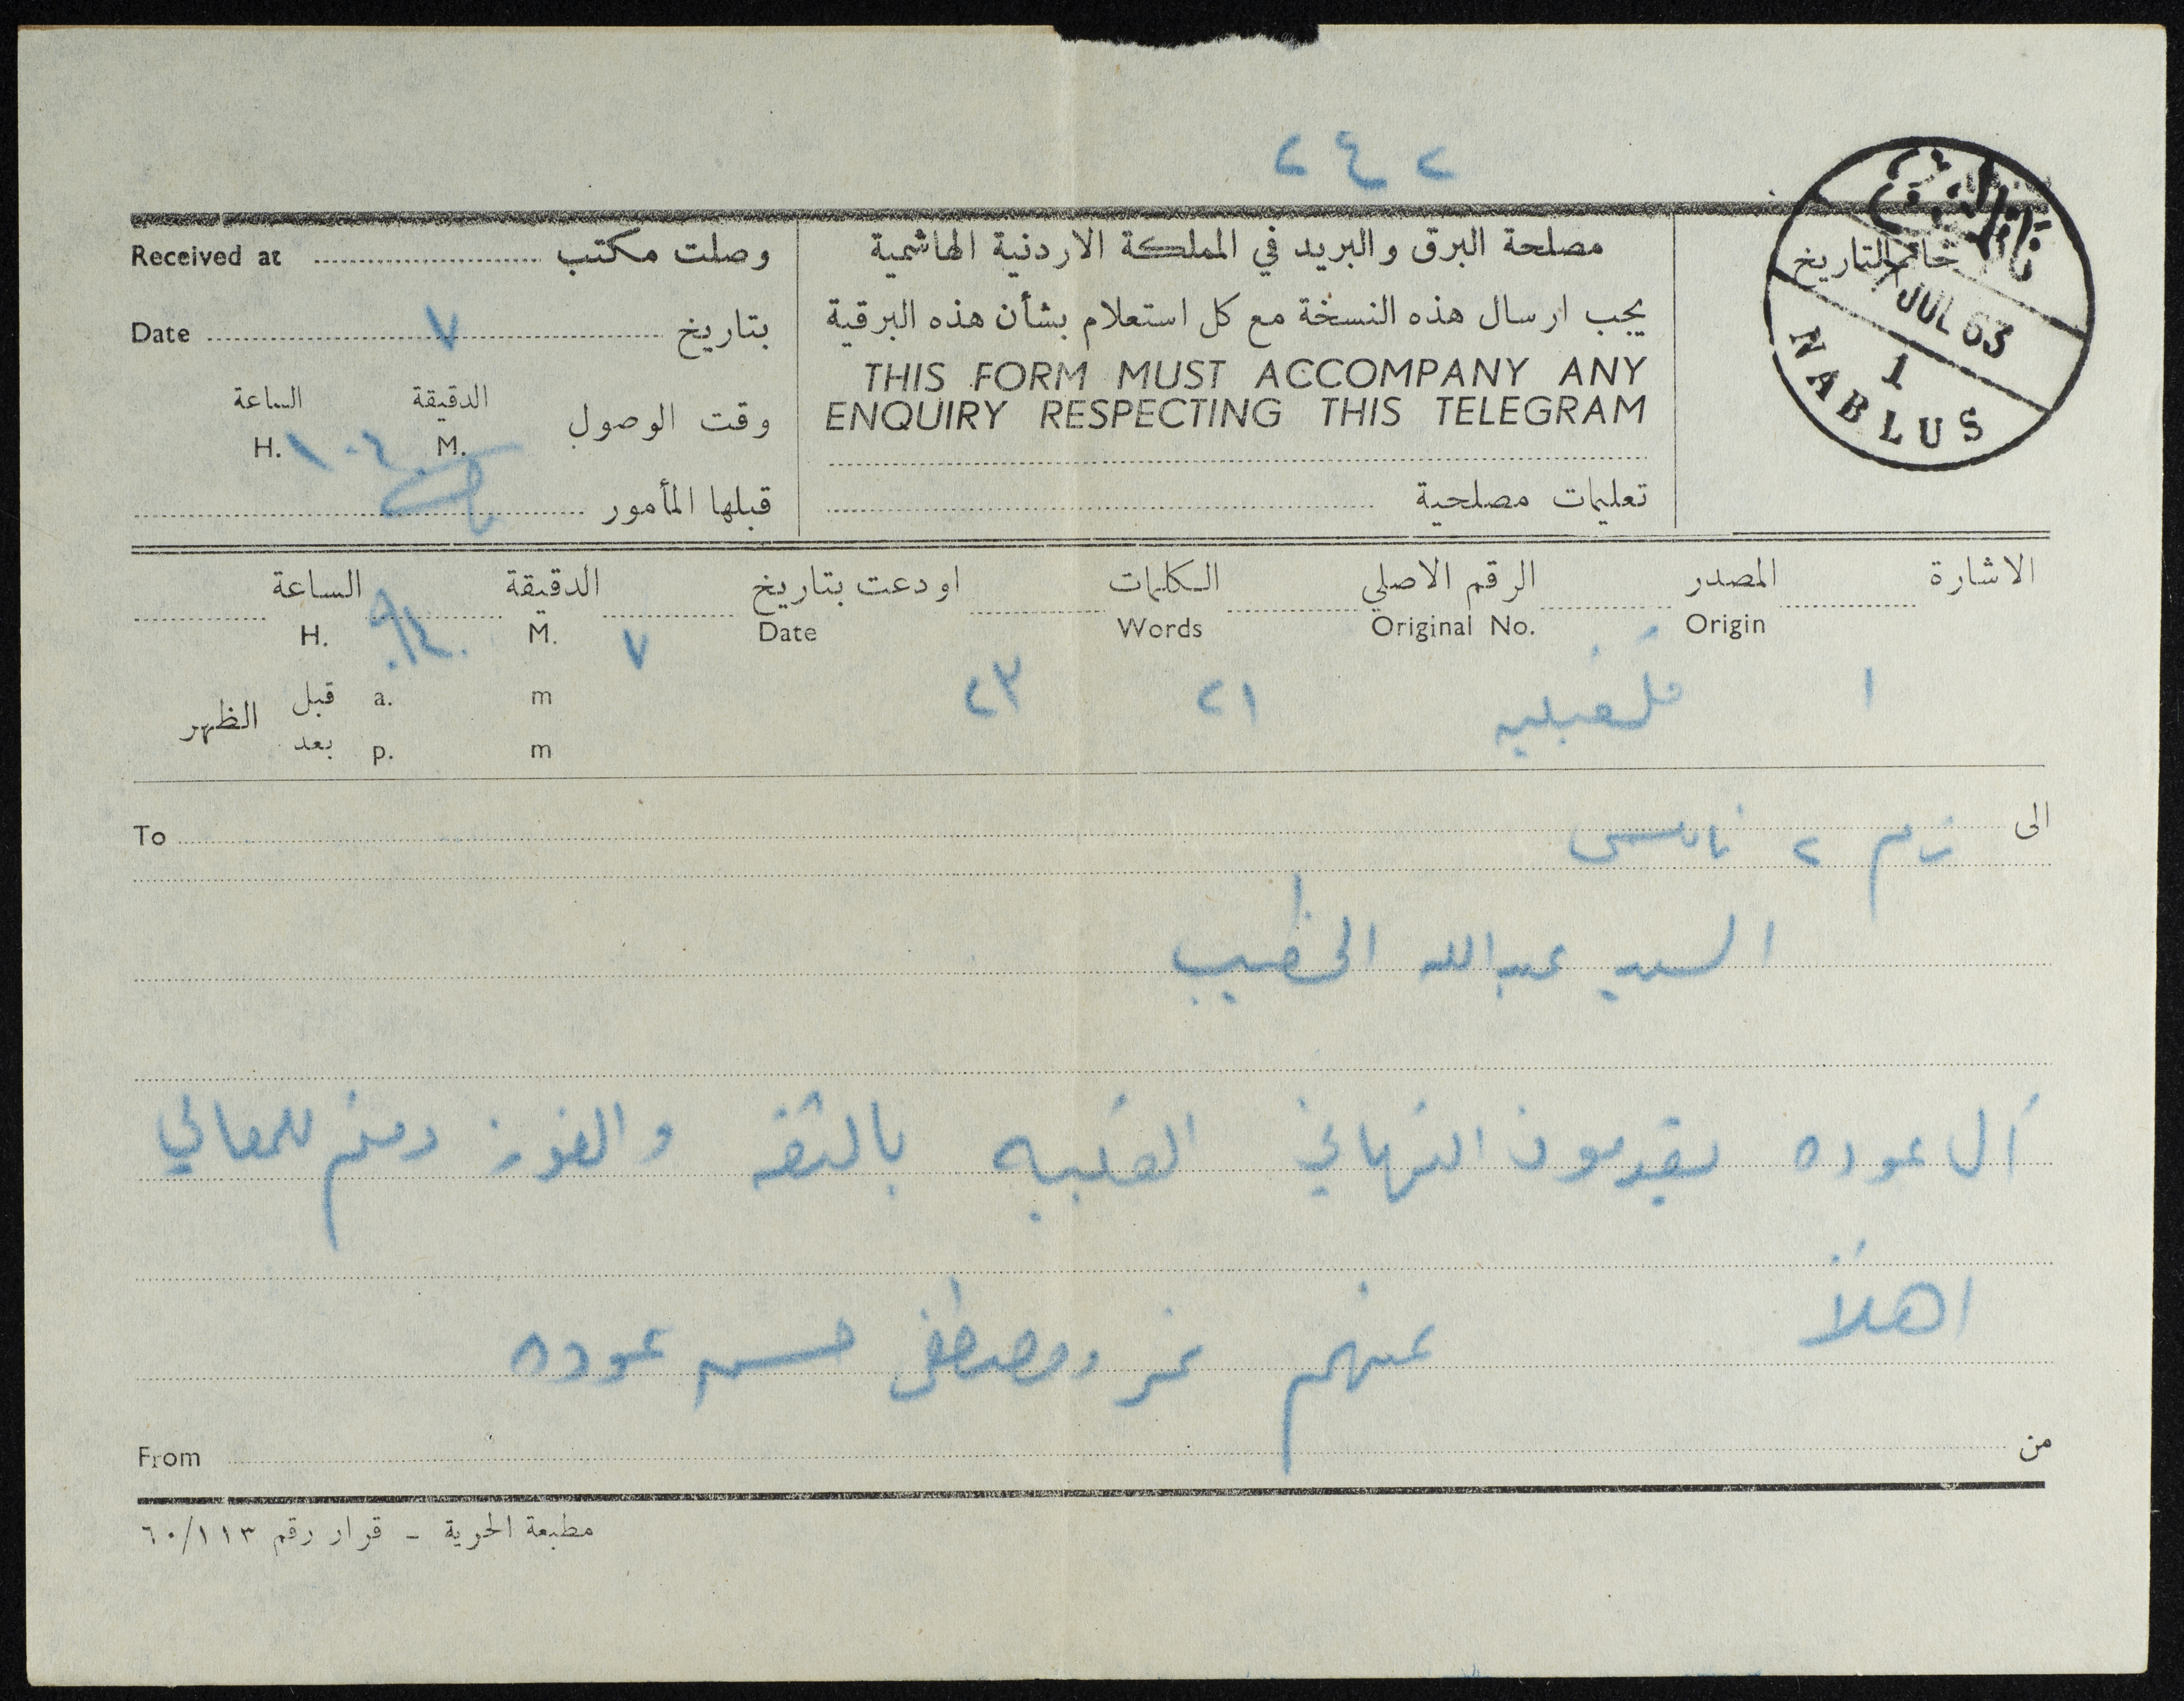 ٢٤٢
Received at وصلت مكتب
مصلحة البرق والبريد في المملكة الاردنية الهاشمية
خاتم التاريخ
7 JUL 63
1
NABLUS
Date ٧ بتاريخ
يجب ارسال هذه النسخة مع كل استعلام بشأن هذه البرقية
THIS FORM MUST ACCOMPANY ANY
ENQUIRY RESPECTING THIS TELEGRAM
الساعة الدقيقة
H. M. وقت الوصول
١٠٤٠
قبلها المأمور
تعليمات مصلحية
الاشارة المصدر الرقم الاصلي الكلمات اودعت بتاريخ الدقيقة الساعة
Origin Original No. Words Date M. H.
١ ٢١ ٢٣ ٧
قبل a. m
الظهر
بعد p. m
الى To
٢ نابلس
السيد عبدالله الخطيب
آل عوده يقدمون التهاني القلبيه بالثقه والفوز دمتم للمعالي
اهلاً
عنهم ومصطفى حسن عوده
من From
مطبعة الحرية - قرار رقم ٦٠/١١٣